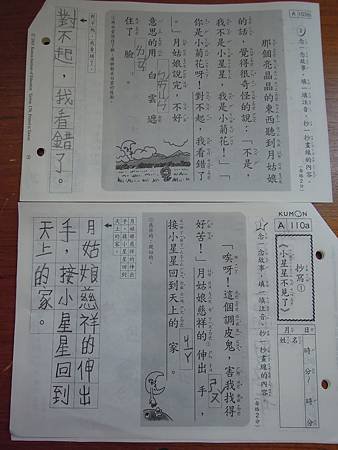 A 109b
念一念故事，填一填注音，抄一抄畫線的內容。
（每格2分）
那個亮晶晶的東西聽到月姑娘
的話，覺得很奇怪的說：「不是，
我不是小星星，我是小菊花！」
「你是小菊花呀！對不起，我看錯了
！」月姑娘說完，不好
意思的用白雲遮
住了臉。
對不起，我看錯了。
對不起，我看錯了。
KUMON
A 110a
抄寫①
《小星星不見了》
月 日
姓名
時 分
時 分
念一念故事，填一填注音，抄一抄畫線的內容。
（每格2分）
「唉呀！這個調皮鬼，害我找得
好苦！」月姑娘慈祥的伸出手，
接小星星回到天上的家。
ㄕㄡ
ㄐㄧㄚ
月姑娘慈祥的伸出
手，接小星星回到
天上的家。
月姑娘慈祥的伸出
手，接小星星回到
天上的家。